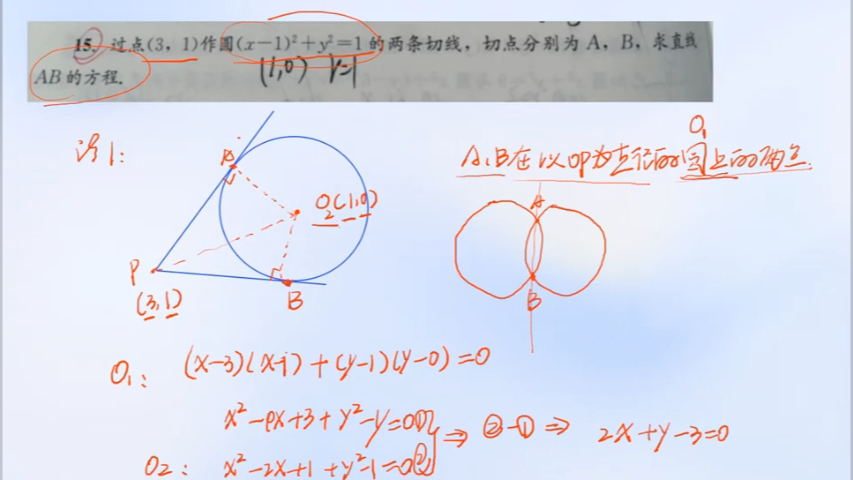 15. 过点(3, 1)作圆(x－1)²＋y²＝1的两条切线, 切点分别为 A, B, 求直线
AB 的方程.
(1,0) r=1
法1:
A
O2(1,0)
P
(3,1)
B
O1
A,B在以OP为直径的圆上的两点.
A
B
O1: (x-3)(x-1)+(y-1)(y-0)=0
x²-4x+3+y²-y=0① ⇒ ②-① ⇒ 2x+y-3=0
O2: x²-2x+1+y²-1=0②